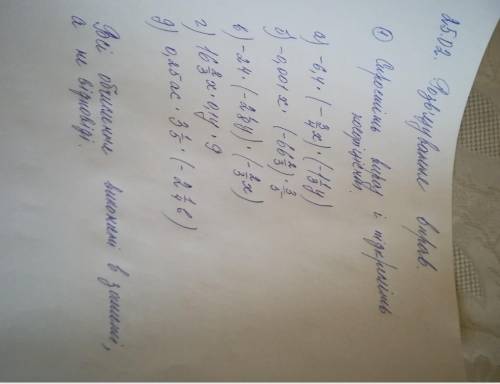 25.02. Розв'язування вправ.
① Спростіть вираз і підкресліть
коефіцієнт.
а) -6,4 · (-3/4 x) · (-1 1/3 y)
б) -0,001x · (-66 2/3) · 3/5
в) -24 · (-2 1/8 y) · (-2/3 x)
г) 16 2/3 x · 0,1y · 9
д) 0,25ac · 3 1/5 · (-2 1/4 b)
Всі обчислення виконані в зошиті,
а не відповіді.